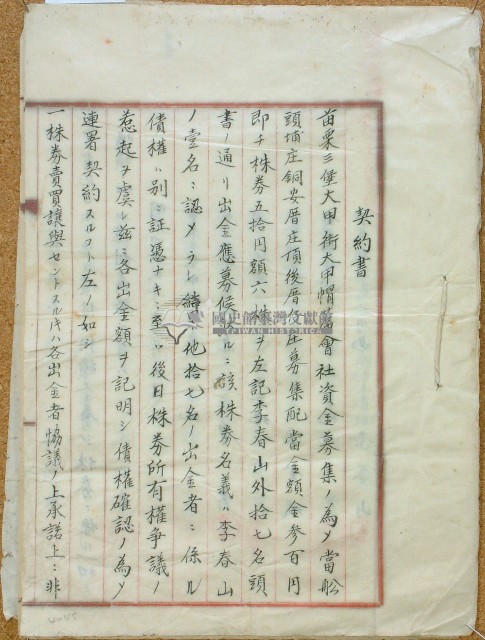 契約書
苗栗三堡大甲街大甲帽蓆會社資金募集ノ為メ當船
頭埔庄銅安厝庄頂後厝仔庄募集配當金額金參百円
即チ株券五拾円額六株ヲ左記李春山外拾七名頭
書ノ通リ出金應募候処ニ該株券名義ハ李春山
ノ壹名ニ認メラレ 他拾七名ノ出金者ニ係ル
債權ハ別ニ証憑ナキニ至ハ後日株券所有權爭議ノ
惹起ヲ虞レ茲ニ各出金額ヲ記明シ債權確認ノ為メ
連署契約スルコト左ノ如シ
一株券賣買讓與セントスル片ハ各出金者協議ノ上承諾上ニ非
國史館臺灣文獻館
TAIWAN HISTORICA